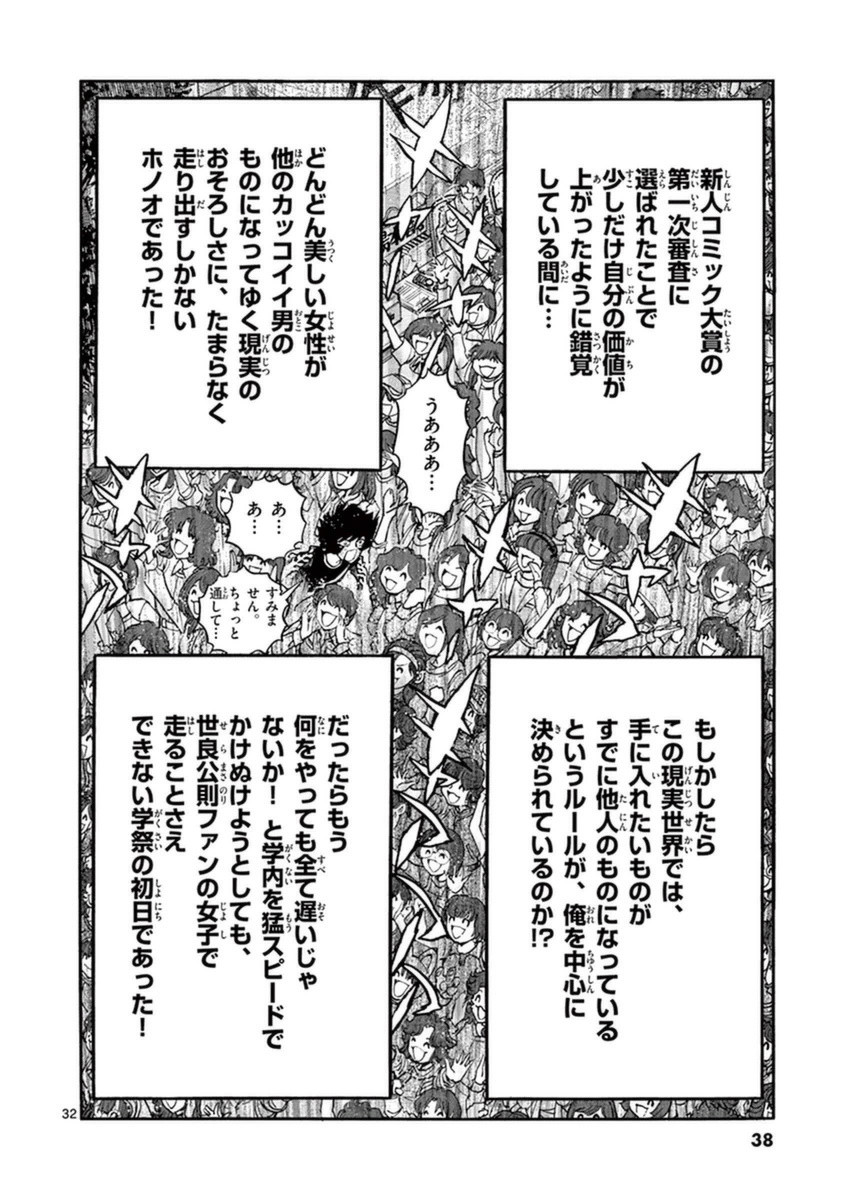 新人コミック大賞の
第一次審査に
選ばれたことで
少しだけ自分の価値が
上がったように錯覚
している間に…
どんどん美しい女性が
他のカッコイイ男の
ものになってゆく現実の
おそろしさに、たまらなく
走り出すしかない
ホノオであった！
うあああ…
あ…
あ…
すみま
せん。
ちょっと
通して…
もしかしたら
この現実世界では、
手に入れたいものが
すでに他人のものになっている
というルールが、俺を中心に
決められているのか!?
だったらもう
何をやっても全て遅いじゃ
ないか！と学内を猛スピードで
かけぬけようとしても、
世良公則ファンの女子で
走ることさえ
できない学祭の初日であった！
32
38